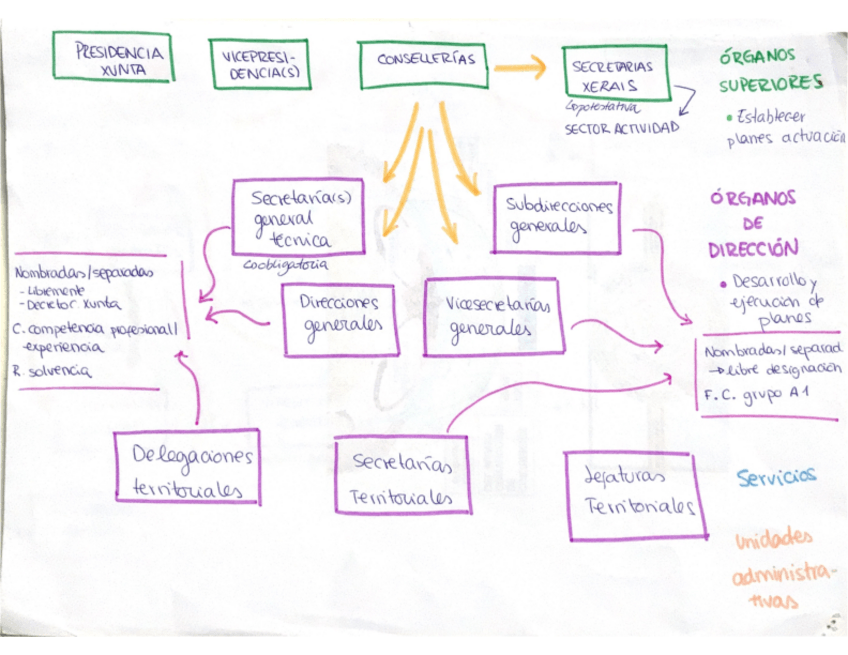 PRESIDENCIA
XUNTA
VICEPRESI-
DENCIA(S)
CONSELLERÍAS
SECRETARIAS
XERAIS
↳potestativa
SECTOR ACTIVIDAD
ÓRGANOS
SUPERIORES
• Establecer
planes actuación
Secretaría(s)
general
técnica
↳obligatoria
Subdirecciones
generales
ÓRGANOS
DE
DIRECCIÓN
• Desarrollo y
ejecución de
planes
Nombradas/separadas
- Libremente
- Decreto C. Xunta
C. competencia profesional/
experiencia
R. solvencia
Direcciones
generales
Vicesecretarías
generales
Nombradas/separad
→ libre designación
F.C. grupo A1
Delegaciones
territoriales
Secretarías
Territoriales
Jefaturas
Territoriales
Servicios
Unidades
administra-
tivas